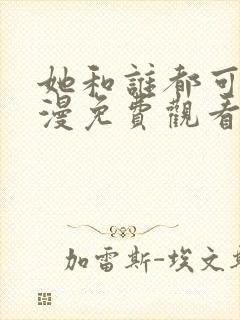 她和誰都可
漫免費觀看
加雷斯-埃文斯